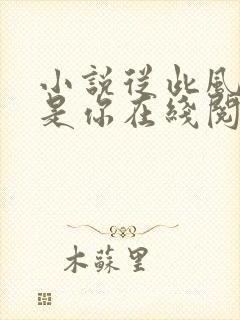 小説從此風
是你在綫閱
木蘇里